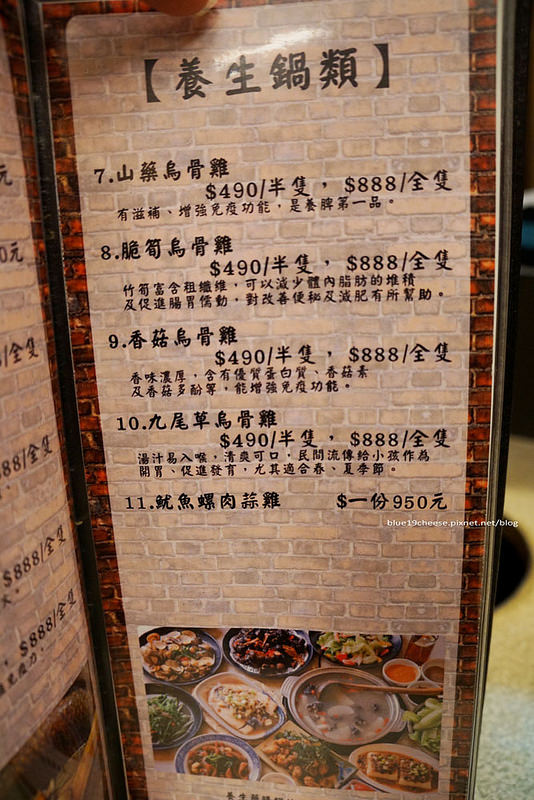 【養生鍋類】
7.山藥烏骨雞
$490/半隻，$888/全隻
有滋補、增強免疫功能，是養脾第一品。
8.脆筍烏骨雞
$490/半隻，$888/全隻
竹筍富含粗纖維，可以減少體內脂肪的堆積
及促進腸胃儒動，對改善便秘及減肥有所幫助。
9.香菇烏骨雞
$490/半隻，$888/全隻
香味濃厚，含有優質蛋白質、香菇素
及香菇多酚等，能增強免疫功能。
10.九尾草烏骨雞
$490/半隻，$888/全隻
湯汁易入喉，清爽可口，民間流傳給小孩作為
開胃、促進發育，尤其適合春、夏季節。
11.魷魚螺肉蒜雞 $一份950元
blue19cheese.pixnet.net/blog
元
0元
/全隻
888/全隻
$888/全隻
$888/全隻